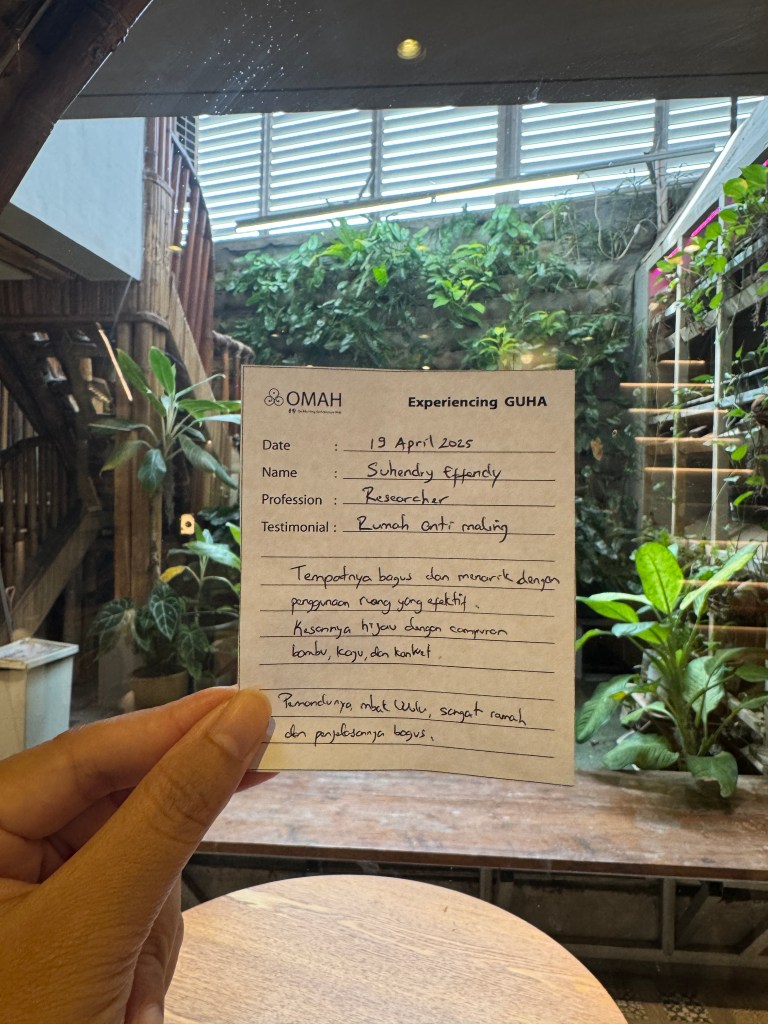 OMAH
Experiencing GUHA
Date : 19 April 2025
Name : Suhendry Effendy
Profession : Researcher
Testimonial : Rumah anti maling
Tempatnya bagus dan menarik dengan
penggunaan ruang yang efektif.
Kesannya hijau dengan campuran
bambu, kayu, dan konkret.
Pemandunya, mbak Lulu, sangat ramah
dan penjelasannya bagus.